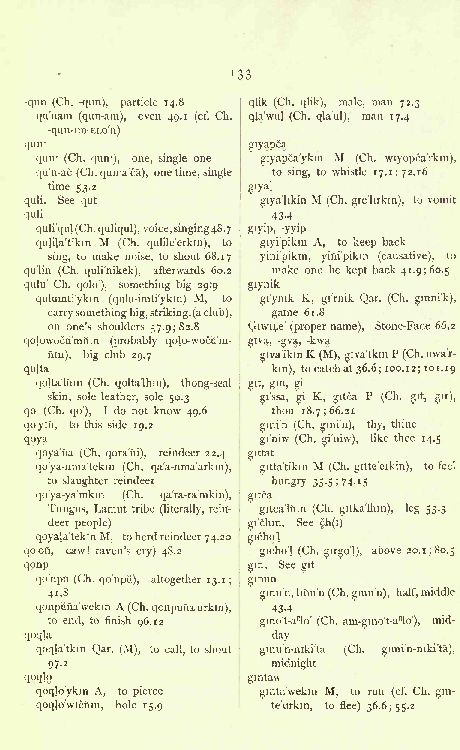 133
-qun (Ch. -qun), particle 14.8
qu'nam (qun-am), even 49.1 (cf. Ch.
qun·
qun· (Ch. qun·), one, single one
qu'n-ac (Ch. qun·a'čă), one time, single
time 53.2
quli. See qut
quli
quli'qul (Ch. quliqul), voice, singing 48.7
quļiļa'tıkın M (Ch. qulile'erkın), to
sing, to make noise, to shout 68.17
qu'lin (Ch. quli'nikek), afterwards 60.2
qulu' (Ch. qolo'), something big 29.9
qulumti'ykın (qulu-imti'ykın) M, to
carry something big, striking, (a club),
on one's shoulders 57.9; 82.8
qoļowočn̂a'mîn·n (probably qoļo-wočn̂a'm-
big club 29.7
qulta
qolta'lñın (Ch. qolta'lhın), thong-seal
skin, sole leather, sole 50.3
qo (Ch. qo'), I do not know 49.6
qo'yın, to this side 19.2
qoya
qoya'n̂a (Ch. qora'n̂i), reindeer 22.4
qo'ya-nma'tekın (Ch. qa'a-nma'arkın),
to slaughter reindeer
qo'ya-ya'mkın (Ch. qa'ra-ra'mkin),
Tungus, Lamut tribe (literally, rein-
deer people)
qoyaļa'tekın M, to herd reindeer 74.20
qo'oñ, caw! raven's cry) 48.2
qonp
qo'npŭ (Ch. qo'npŭ), altogether 13.1;
41.8
qonpŭn̂a'wekın A (Ch. qonpun̂a'urkın),
to end, to finish 96.12
qoqļa
qoqļa'tkın Qar. (M), to call, to shout
97.2
qoqļo
qoqļo'ykın A, to pierce
qoqļo'wıčn̂ın, hole 15.9
qlik (Ch. qlik), male, man 72.3
qļa'wul (Ch. qla'ul), man 17.4
gıyapča
gıyapča'ykın M (Ch. wıyopča'rkın),
to sing, to whistle 17.1; 72.16
gıyaļ
gıya'ļıkın M (Ch. gre'lırkın), to vomit
43.4
gıyip, -yyip
gıyi'pıkın A, to keep back
yini'pıkın, yîn̂i'pikın (causative), to
make one be kept back 41.9; 60.5
gıynik
gi'ynik K, gı'enik Qar. (Ch. gınni'k),
game 61.8
(proper name), Stone-Face 66.2
gıva, -gva, -kwa
gıva'ıkın K (M), gıva'tkın P (Ch. uwa'r-
kın), to catch at 36.6; 100.12; 101.19
git, gın, gi
gı'ssa, gi K, gıtča P (Ch. gıt, gır),
thou 18.7; 66.21
gıni'n (Ch. gıni'n), thy, thine
gı'niw (Ch. gi'niw), like thee 14.5
gıttat
gıtta'tıkın M (Ch. gıtte'erkın), to feel
hungry 35.5; 74.15
gıtča
gıtča'lñın (Ch. gıtka'lhın), leg 53.3
gı'čhın. See
gıčhoļ
gıčho'ļ (Ch. gırgo'l), above 20.1; 80.5
gın. See gıt
gınun
gınu'n, hıni'n (Ch. gınu'n), half, middle
43.4
gıno't-aⁿlo' (Ch. am-gıno't-aⁿlo'), mid-
day
gınu'n-nıki'ta (Ch. gınu'n-nıki'tă),
midnight
gıntaw
gınta'wekın M, to run (cf. Ch. gın-
te'urkın, to flee) 36.6; 55.2